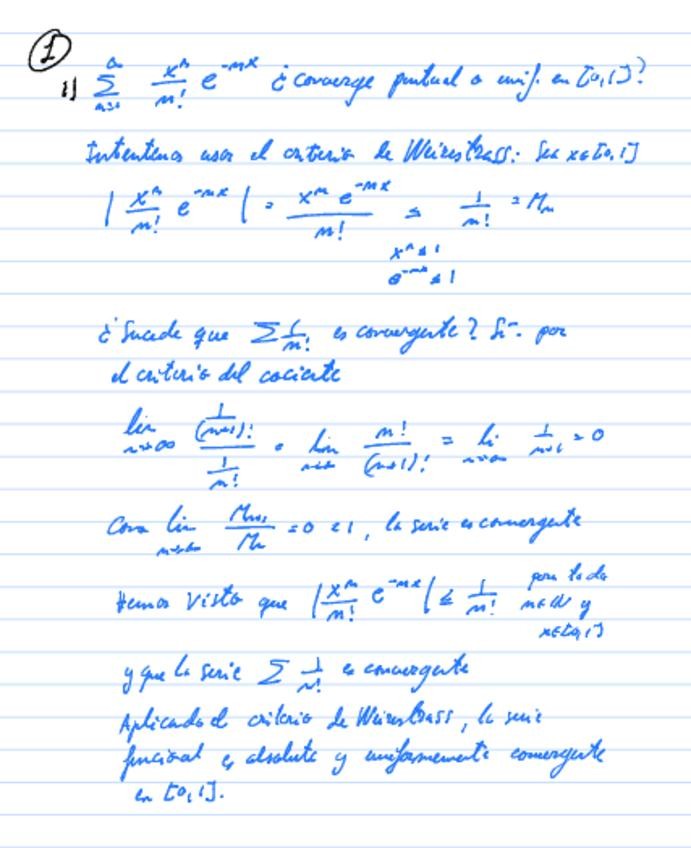 ①
i) ∑_{n=1}^{∞} x^n/n! e^{-nx} ¿converge puntual o unif. en [0,1]?
Intentemos usar el criterio de Weirestrass: Sea x∈[0,1]
| x^n/n! e^{-nx} | = x^n e^{-nx}/n! ≤ 1/n! = M_n
x^n ≤ 1
e^{-nx} ≤ 1
¿Sucede que ∑ 1/n! es convergente? Sí. por
el criterio del cociente
lim_{n→∞} (1/(n+1)!)/(1/n!) = lim_{n→∞} n!/(n+1)! = lim_{n→∞} 1/(n+1) = 0
Como lim_{n→∞} M_{n+1}/M_n = 0 < 1, la serie es convergente
Hemos visto que |x^n/n! e^{-nx}| ≤ 1/n! para todo
n∈ℕ y
x∈[0,1]
y que la serie ∑ 1/n! es convergente
Aplicando el criterio de Weirestrass, la serie
funcional es absoluta y uniformemente convergente
en [0,1].